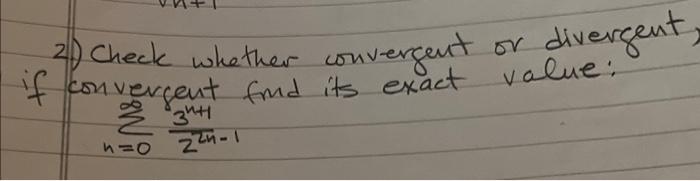 √n+1
2) Check whether convergent or divergent,
if convergent find its exact value:
∞
Σ 3^{n+1} / 2^{2n-1}
n=0